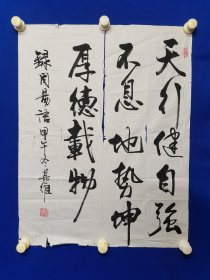 天行健自强
不息地勢坤
厚德載物
録周易語甲午冬